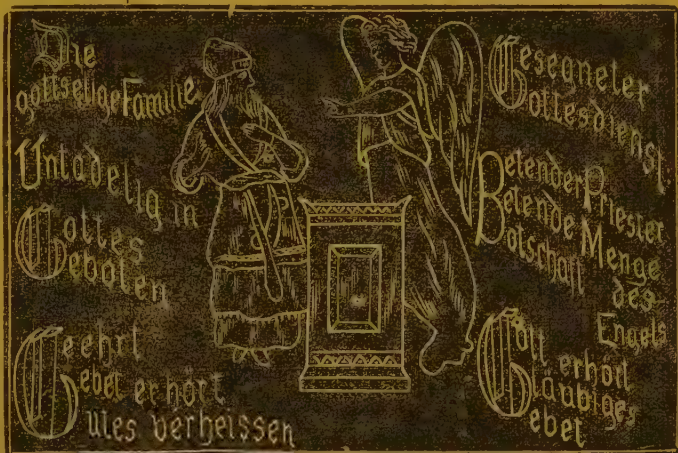 Die
gottselige Familie
Untadelig in
Gottes
Geboten
Geehrt
Gebet erhört
Gutes verheissen
Gesegneter
Gottesdienst
Betender Priester
Betende Menge
Botschaft des
Engels
Gott erhört
Gläubiges
Gebet